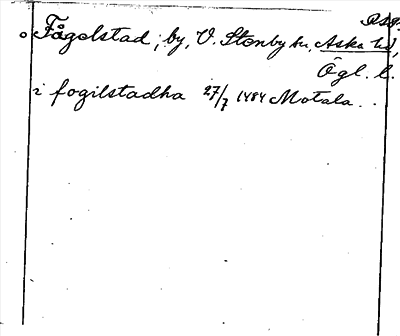 Dsg.
Fågelstad, by, V. Stenby sn, Aska hd,
Ögl. l.
i fogilstadha 27/7 1484 Motala..